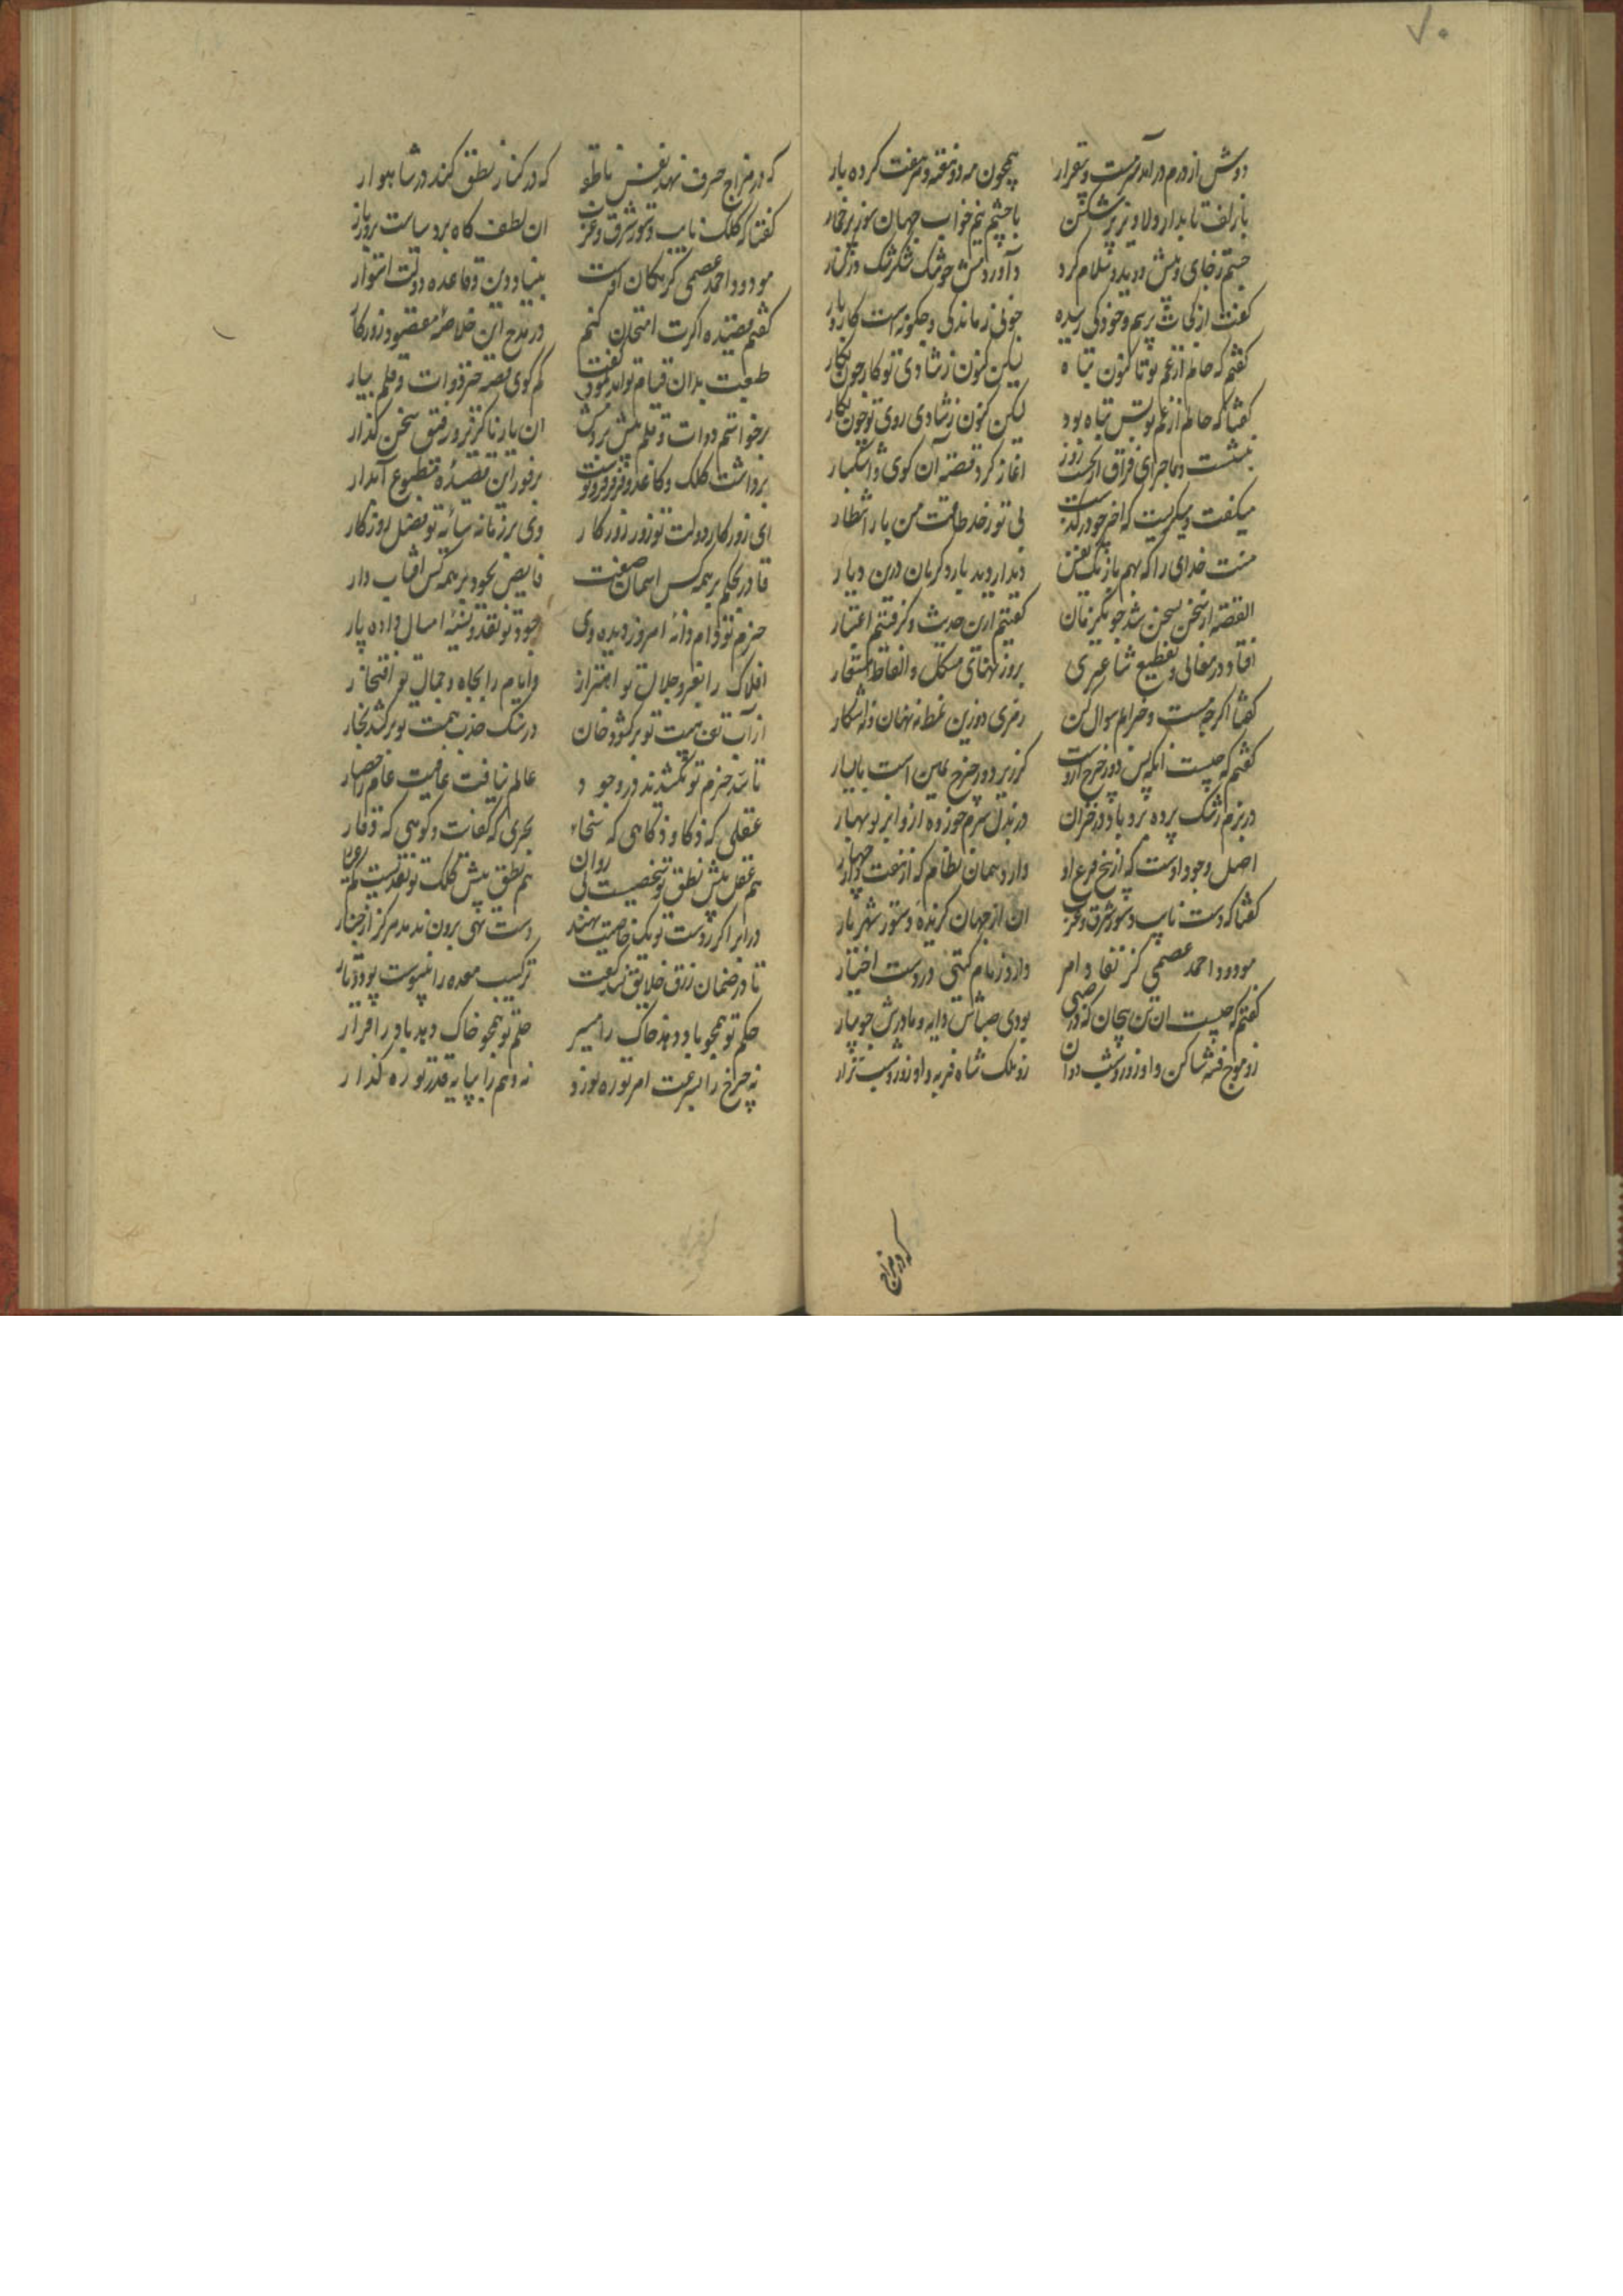 ۷۰
دوش از درم درآمد سرمست و بیقرار همچون مه دو هفته و هر هفت کرده یار
با زلف تابدار دلاویز پر شکن با چشم نیم خواب جهان سوز پر خمار
جستم ز جای و پیش دویدم و سلام کرد واوردمش چو تنگ شکر تنگ در کنار
گفت از کجات پرسم و خود کی رسیده چونی ز ماندگی و چگونه است کار و بار
گفتم که حالم از غم تو تا کنون تباه لیکن کنون ز شادی تو کار چون نگار
گفتا که حالم از غم تو بس تباه بود لیکن کنون ز شادی روی تو چون نگار
بنشست و ماجرای فراق از نخست روز اغاز کرد قصه آن گوی و اشکبار
میگفت و میگریست که اخر چو درگذشت بی تو ز حد طاقت من بار انتظار
منت خدای را که بهم باز یک نفس دیدار وید یارد کریان درین دیار
القصه از سخن بسخن شد چو یکزمان گفتیم ازین حدیث و گرفتیم اعتبار
افتاد در معانی و تقطیع شاعری بر وزنهای مشکل و الفاظ مستعار
گفتا اگرچه مست و خرابم سوال کن رمزی دو زین نمط نه نهان و نه اشکار
گفتم که چیست انکه پس دور چرخ اوست کز زیر دور چرخ یمین است یا یسار
در بزم رشک برده برو باد در خزان در بذل شرم خورده ازو ابر نوبهار
اصل وجود اوست که از بیخ فرع او دارد همان نظام که از هفت و چهار
گفتا که دست نایب دستور شرق و غرب ان از جهان گزیده دستور شهریار
مودود احمد عصمی کز نفاد امر دارد زمام گیتی در دست اختیار
گفتم که چیست ان تن بیجان که در صبی بودی صباش دایه و مادرش جویبار
زو موج فتنه ساکن و او روز و شب دوان زو ملک شاه فربه و او روز و شب نزار
که در مزاج
که در مزاج حرف نهد نفس ناطقه که در کنار نطق کند در شاهوار
گفتا که کلک نایب دستور شرق و غرب ان لطف گاه برد سیاست بروز بار
مودود احمد عصمی کز مکان اوست بنیاد دین و قاعده دولت استوار
گفتم قصیده اگرت امتحان کنم در مدح این خلاصه مقصود روزگار
طبعت بدان قیام تواند نمود گفت کم گوی قصه خیز دوات و قلم بیار
برخواستم دوات و قلم پیش بردمش ان یار ناگزیر و رفیق سخن گذار
برداشت کلک و کاغذ و فرفر فرو نوشت بر فور این قصیده مطبوع آبدار
ای زور کار دولت تو روز روزگار وی بر زمانه سایه تو فضل روزگار
قادر بحکم بر همه کس اسمان صفت فایض بجود بر همه کس افتاب وار
حزم تو دام و دانه امروز دیده دی جود تو نقد و نسیه امسال داده پار
افلاک را بعز و جلال تو اهتزاز وایام را بجاه و جمال تو افتخار
از آب تف هیبت تو برکشد دخان در سنگ جذب همت تو برکشد بخار
تا سد حزم تو نکشیدند در وجود عالم نیافت عافیت عام را حصار
عقلی که ذکا و ذکاهی که سخاء بحری که کفانت و کوهی که وقار
هم عقل پیش نطق تو شخصیست بی روان هم نطق پیش کلک تو نقدیست کم عیار
در ابر اگر ز دست تو یک خاصیت نهند دست تهی برون ندمد هرگز از چنار
تا در ضمان رزق خلایق نشد کفت ترکیب معده را نپیوست پود و تار
حکم تو همچو باد دهد خاک را مسیر حلم تو همچو خاک دهد باد را قرار
نه چرخ را بسرعت امر تو ره نورد نه وهم را بپایه قدر تو ره گذار